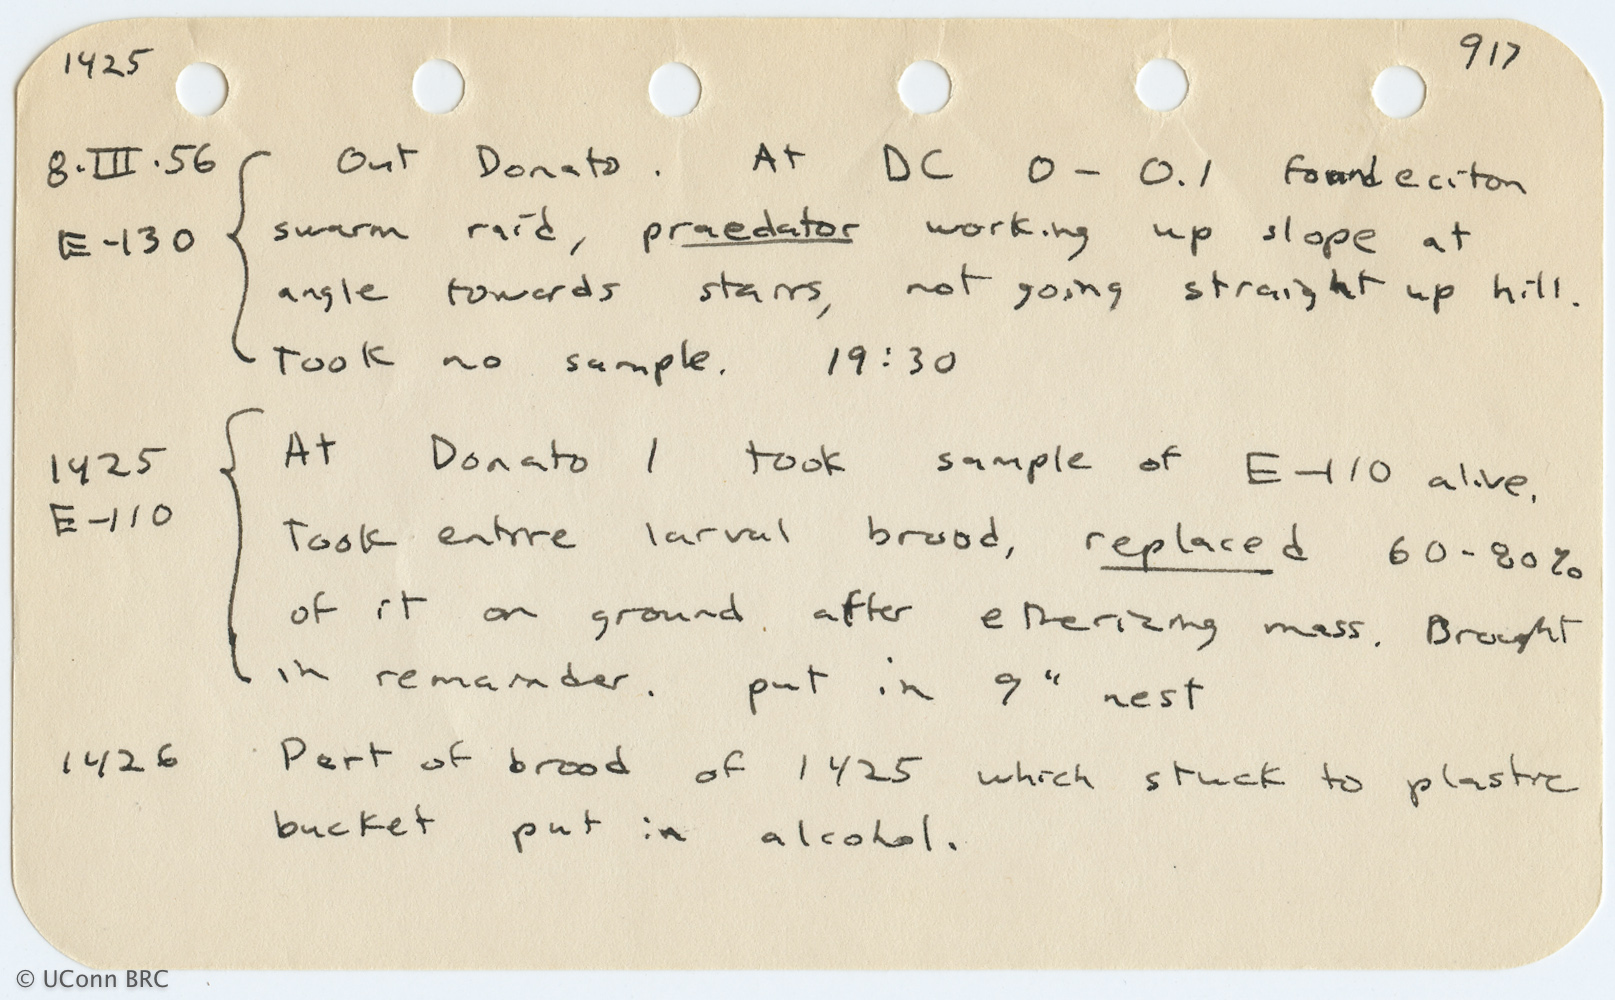 1425 917
8.III.56 Out Donato. At DC 0-0.1 found eciton
E-130 swarm raid, praedator working up slope at
angle towards stairs, not going straight up hill.
Took no sample. 19:30
1425 At Donato 1 took sample of E-110 alive.
E-110 Took entire larval brood, replaced 60-80%
of it on ground after etherizing mass. Brought
in remainder. put in 9" nest
1426 Part of brood of 1425 which stuck to plastic
bucket put in alcohol.
© UConn BRC